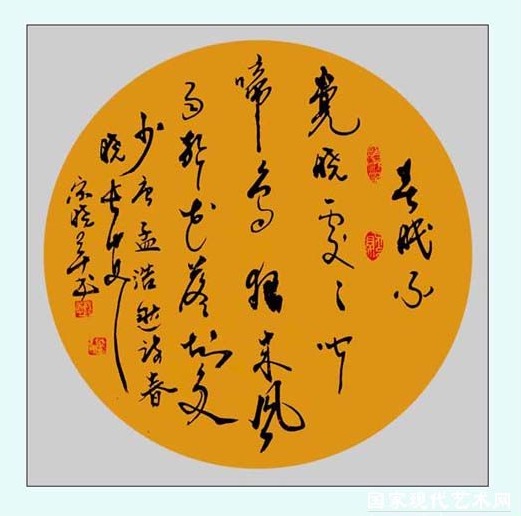 春眠不
觉晓处处闻
啼鸟夜来风
雨声花落知多
少唐孟浩然诗春
晓
宋晓书
国家现代艺术网